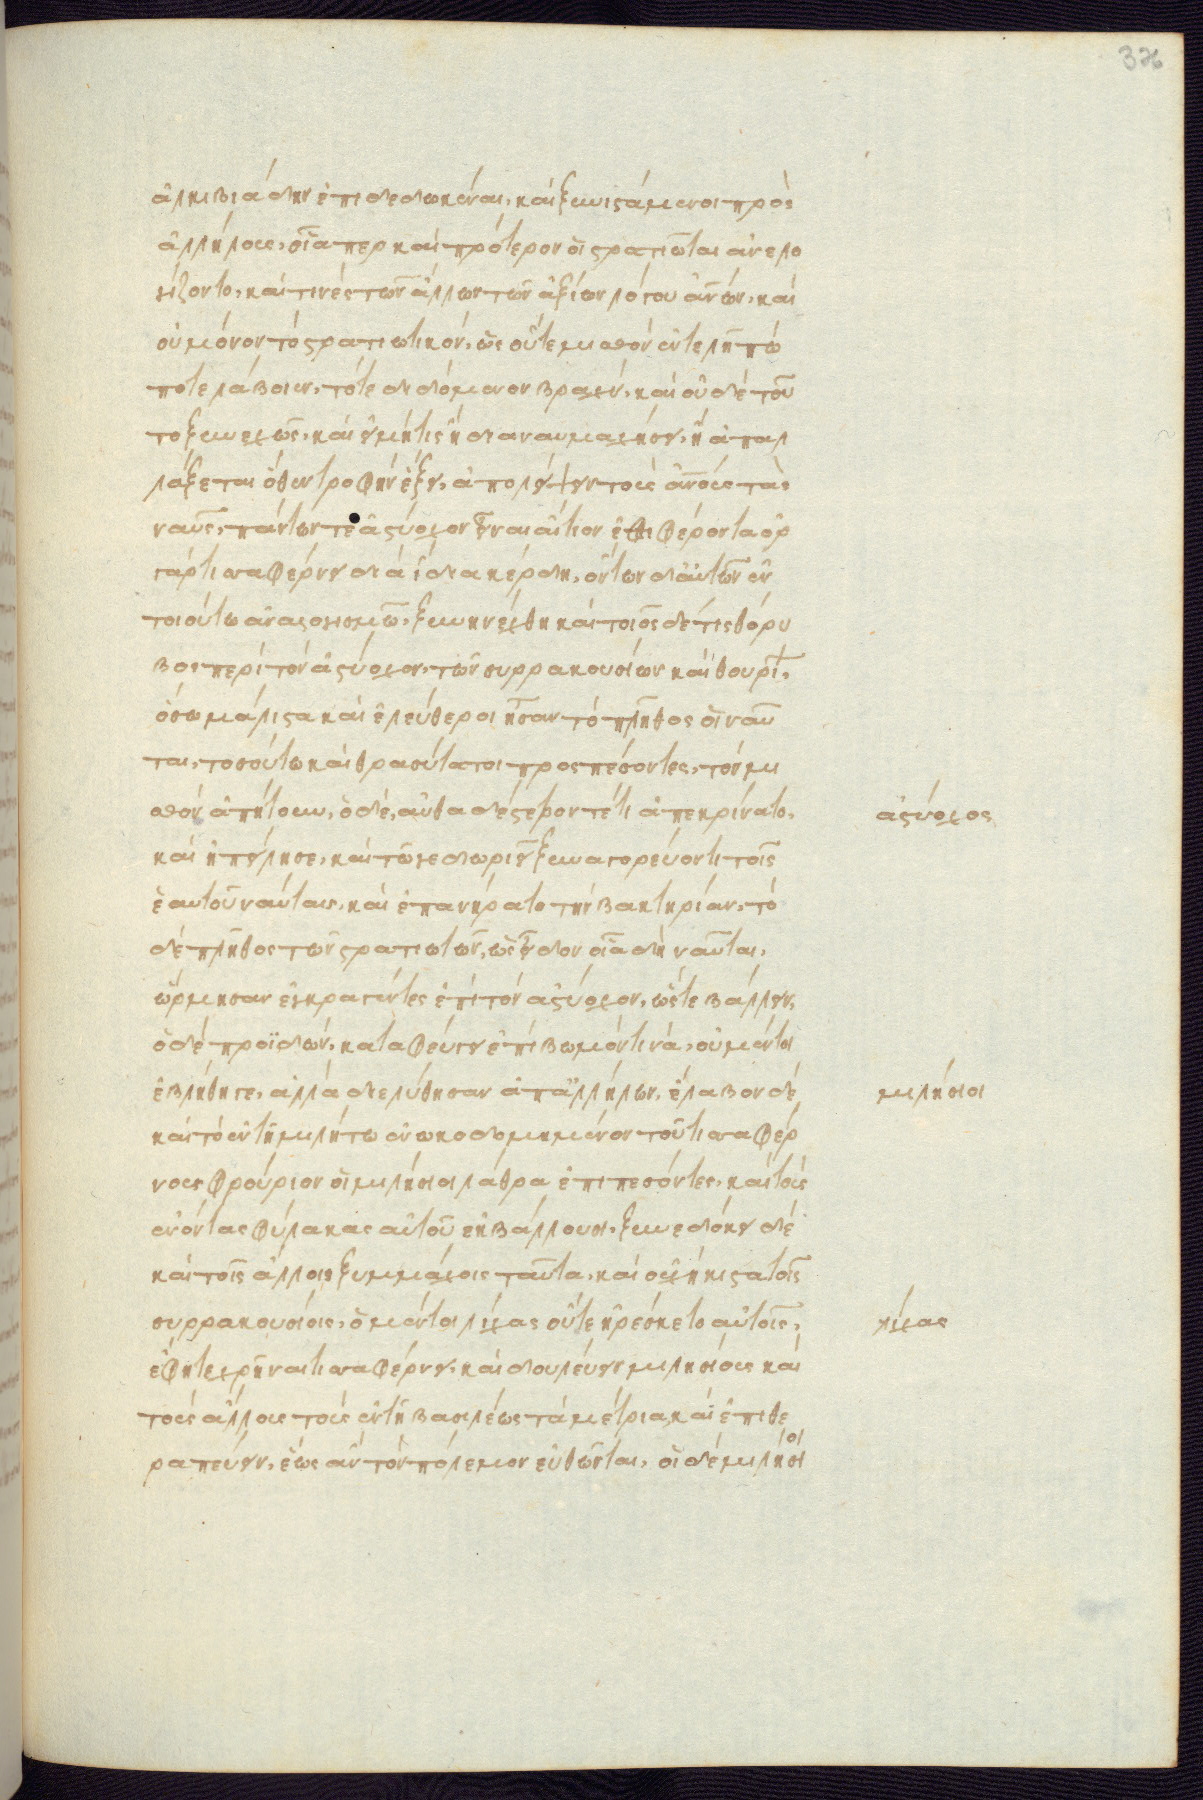 376
ἀλκιβιάδην ἐπιδεδωκέναι, καὶ ξυνιστάμενοι πρὸς
ἀλλήλους, οἷά περ καὶ πρότερον οἱ στρατιῶται ἀνελο
γίζοντο, καί τινες τῶν ἄλλων τῶν ἀξίων λόγου ἀνων, καὶ
οὐ μόνον τὸ στρατιωτικόν, ὡς οὔτε μισθὸν ἐντελῆ πώ
ποτε λάβοιεν, τό τε διδόμενον βραχύ, καὶ οὐδὲ τοῦ
το ξυνεχῶς, καὶ εἰ μή τις ἢ διαναυμαχήσει, ἢ ἀπαλ
λάξεται ὅθεν τροφὴν ἕξει, ἀπολείψειν τοὺς ἀνους τὰς
ναῦς, πάντων τὲ ἀστύοχον εἶναι αἴτιον ἐπιφέροντα ὀρ
γὰς τισσαφέρνει διὰ ἴδια κέρδη, ὄντων δ' αὐτῶν ἐν
τοιούτω ἀναλογισμῶ, ξυνηνέχθη καὶ τοιόσδέ τις θόρυ
βος περὶ τὸν ἀστύοχον, τῶν συρρακουσίων καὶ θουρί,
ὅσω μάλιστα καὶ ἐλεύθεροι ἦσαν τὸ πλῆθος οἱ ναῦ
ται, τοσούτω καὶ θρασύτατοι προσπεσόντες, τὸν μι
σθὸν ἀπήτουν, ὁ δὲ, αὐθαδέστερόν τέ τι ἀπεκρίνατο,
καὶ ἠπείλησε, καὶ τῶ γε δωριεῖ ξυναγορεύοντι τοῖς
ἑαυτοῦ ναύταις, καὶ ἐπανήρατο τὴν βακτηρίαν, τὸ
δὲ πλῆθος τῶν στρατιωτῶν, ὡς εἶδον οἷα δὴ ναῦται,
ὥρμησαν ἐγκραγέντες ἐπὶ τὸν ἀστύοχον, ὥστε βάλλειν,
ὁ δὲ προϊδών, καταφεύγει ἐπὶ βωμόν τινά, οὐ μέντοι
ἐβλήθη γε, ἀλλὰ διελύθησαν ἀπ' ἀλλήλων, ἔλαβον δὲ
καὶ τὸ ἐν τῆ μιλήτω ἐνωκοδομημένον τοῦ τισσαφέρ
νους φρούριον οἱ μιλήσιοι λάθρα ἐπιπεσόντες, καὶ τοὺς
ἐνόντας φύλακας αὐτοῦ ἐκβάλλουσι, ξυνεδόκει δὲ
καὶ τοῖς ἄλλοις ξυμμάχοις ταῦτα, καὶ οὐχ ἥκιστα τοῖς
συρρακουσίοις, ὁ μέντοι λίχας οὔτε ἠρέσκετο αὐτοῖς,
ἔφη τε χρῆναι τισσαφέρνει, καὶ δουλεύειν μιλησίους καὶ
τοὺς ἄλλους τοὺς ἐν τῆ βασιλέως τὰ μέτρια, καὶ ἐπιθε
ραπεύειν, ἕως ἂν τὸν πόλεμον εὖ θῶνται, οἱ δὲ μιλήσιοι
ἀστύοχος
μιλήσιοι
λίχας